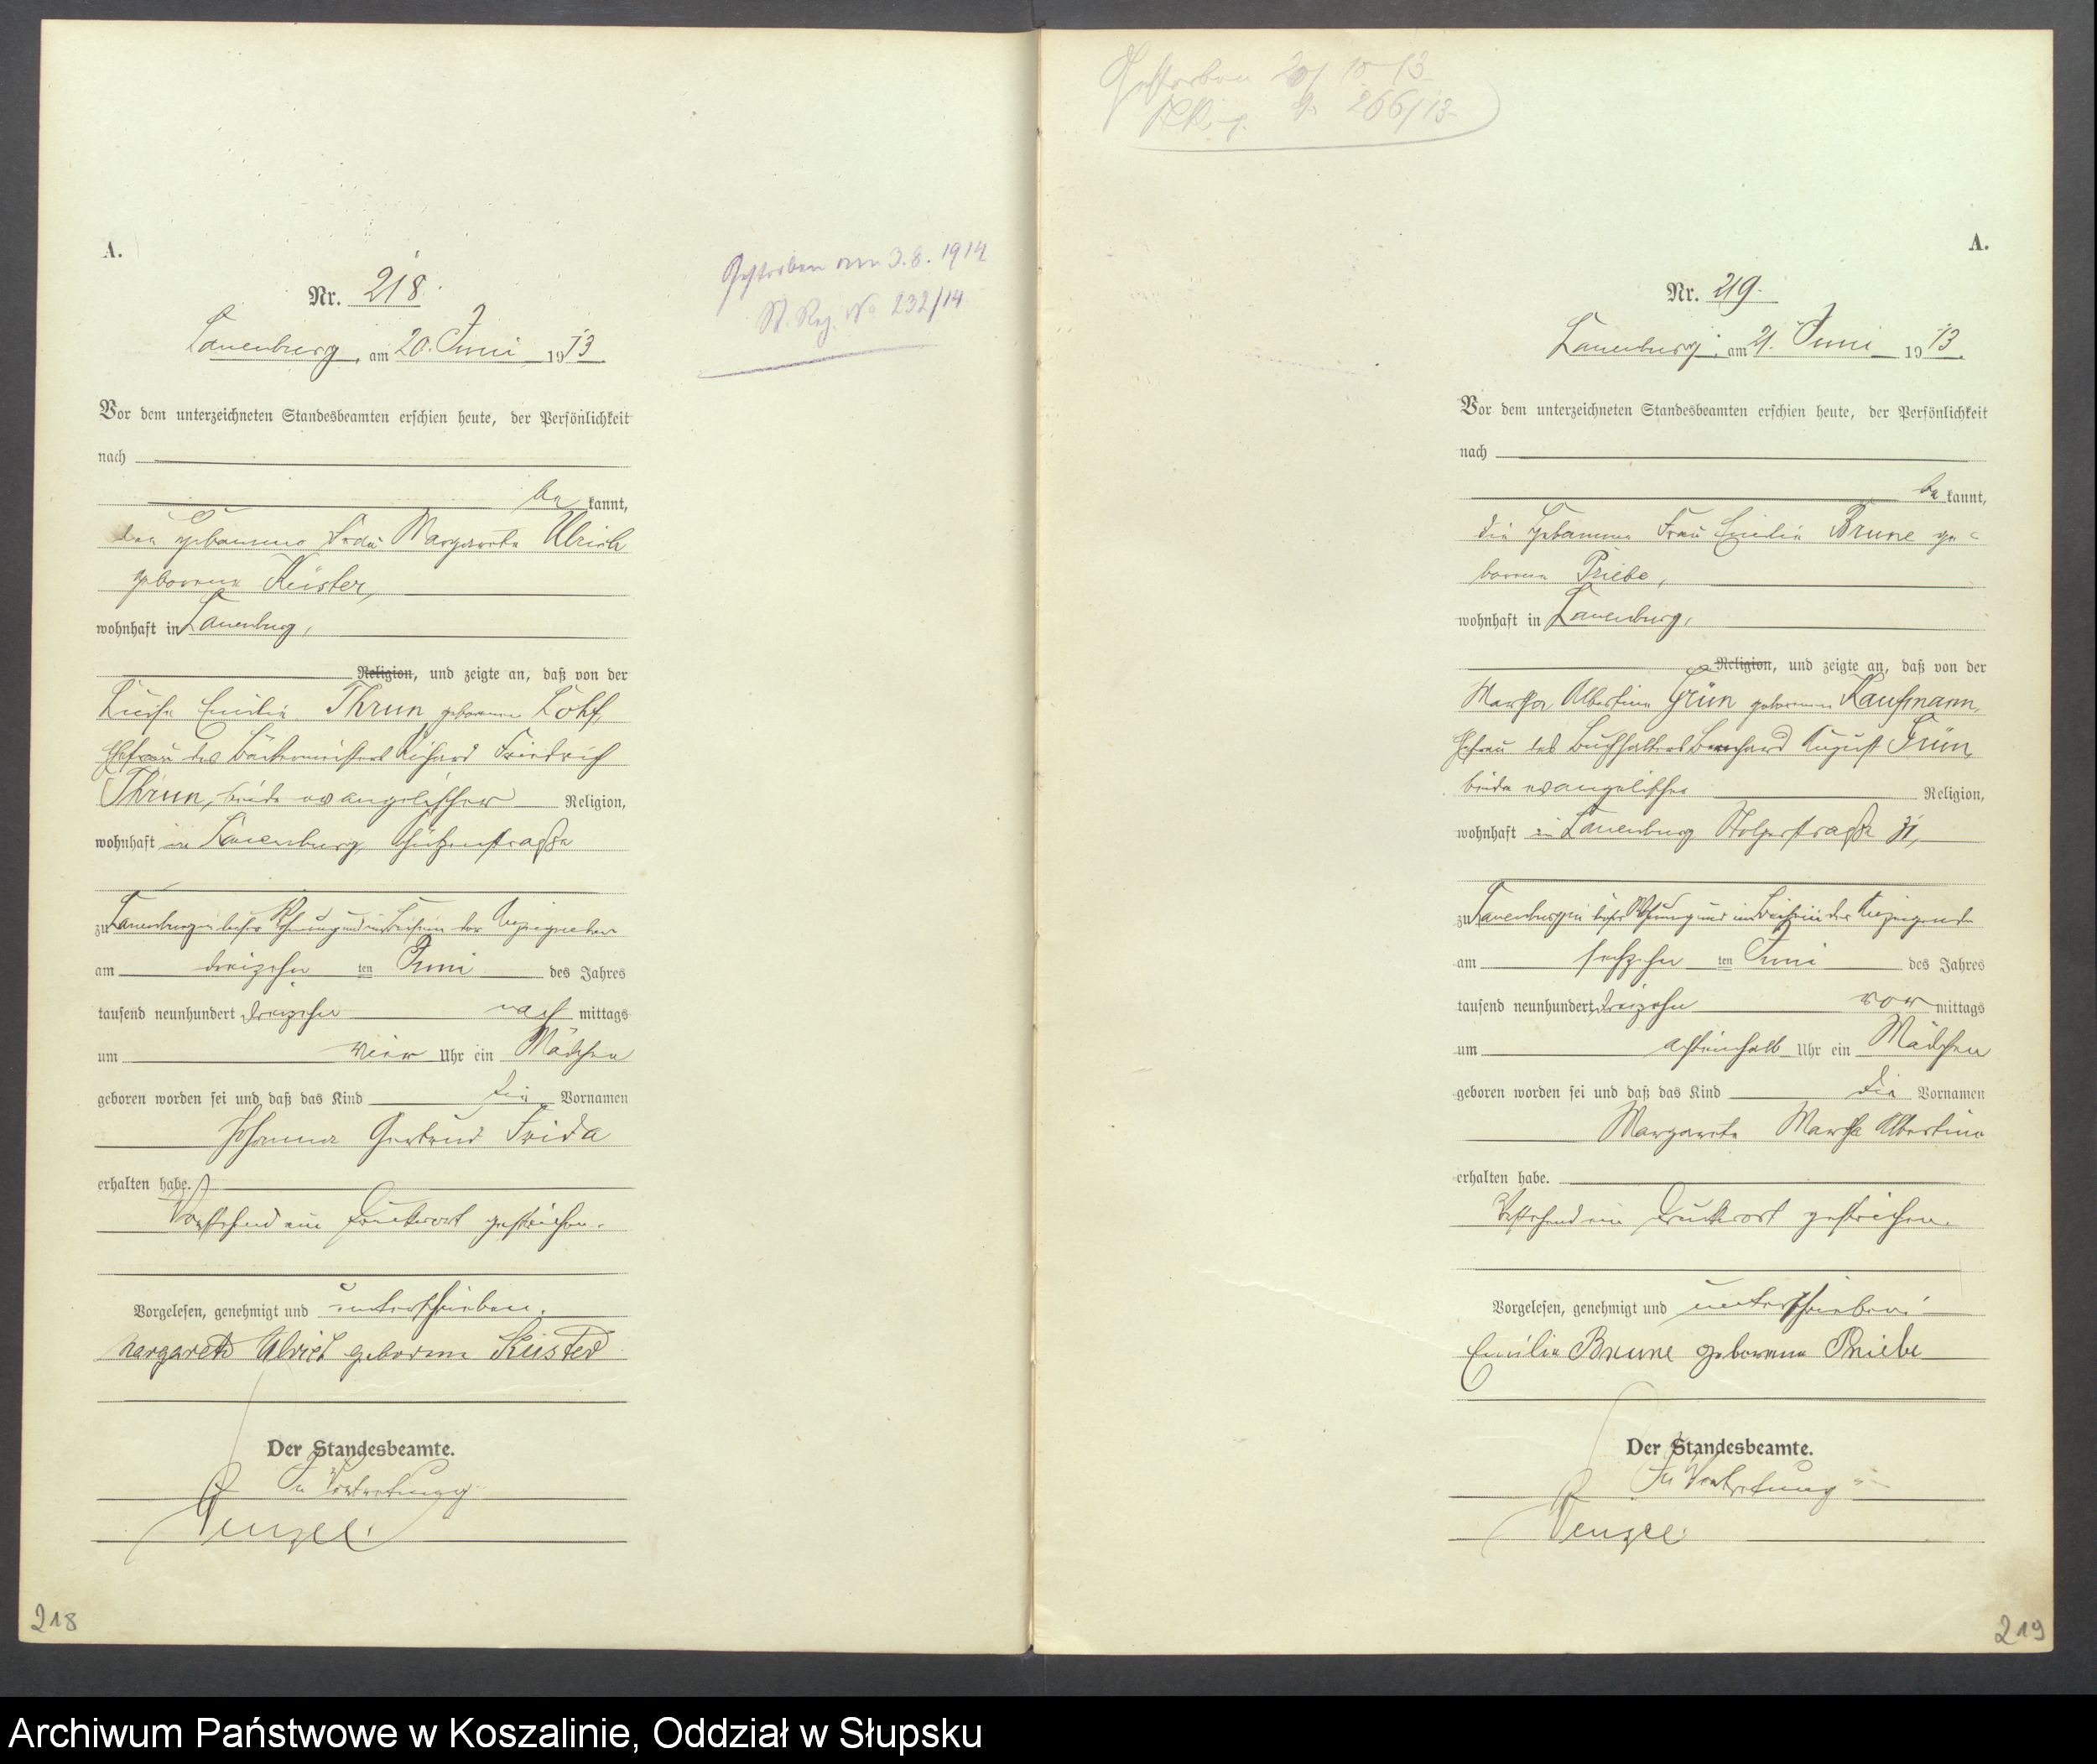 A.
Nr. 218.
Lauenburg, am 20. Juni 1913.
Gestorben am 3.8.1914
St. Reg. No 232/14
Vor dem unterzeichneten Standesbeamten erschien heute, der Persönlichkeit
nach
be kannt,
die Hebamme Frau Margarete Ulrich
geborene Küster,
wohnhaft in Lauenburg,
Religion, und zeigte an, daß von der
Luise Emilie Thrun geborenen
Ehefrau des Bäckermeisters Richard Friedrich
Thrun, beide evangelischer Religion,
wohnhaft in Lauenburg, Schützenstraße
zu Lauenburg in dieser Wohnung und im Beisein der Anzeigenden
am dreizehn ten Juni des Jahres
tausend neunhundert dreizehn nach mittags
um vier Uhr ein Mädchen
geboren worden sei und daß das Kind die Vornamen
Johanna Gertrud Frida
erhalten habe.
Vorstehend ein Druckwort gestrichen.
Vorgelesen, genehmigt und unterschrieben.
Margarete Ulrich geborene Küster
Der Standesbeamte.
In Vertretung
Wenzel.
218
Gestorben 20/10 13
266/13
A.
Nr. 219.
Lauenburg, am 21. Juni 1913.
Vor dem unterzeichneten Standesbeamten erschien heute, der Persönlichkeit
nach
be kannt,
die Hebamme Frau Emilie Brune ge-
borene Priebe,
wohnhaft in Lauenburg,
Religion, und zeigte an, daß von der
Martha Albertine Grün geborenen Kaufmann,
Ehefrau des Buchhalters Bernhard August Grün,
beide evangelischer Religion,
wohnhaft in Lauenburg Stolperstraße 31,
zu Lauenburg in dieser Wohnung und im Beisein der Anzeigenden
am sechzehn ten Juni des Jahres
tausend neunhundert dreizehn vor mittags
um achteinhalb Uhr ein Mädchen
geboren worden sei und daß das Kind die Vornamen
Margarete Martha Albertine
erhalten habe.
Vorstehend ein Druckwort gestrichen.
Vorgelesen, genehmigt und unterschrieben.
Emilie Brune geborene Priebe
Der Standesbeamte.
In Vertretung
Wenzel.
219
Archiwum Państwowe w Koszalinie, Oddział w Słupsku